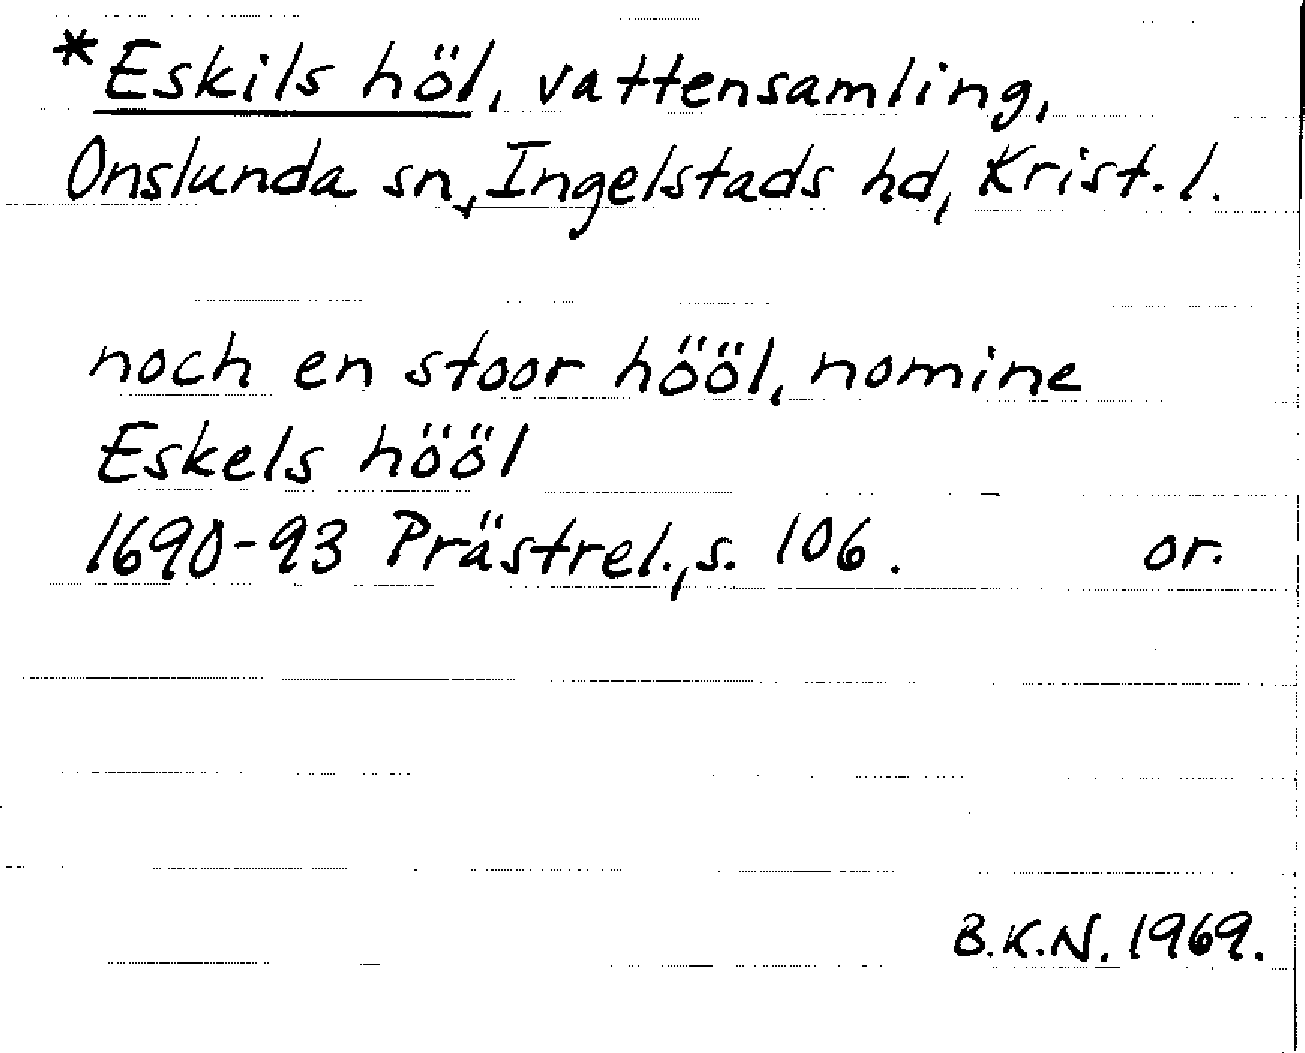 *Eskils höl, vattensamling,
Onslunda sn, Ingelstads hd, Krist. l.
noch en stoor hööl, nomine
Eskels hööl
1690-93 Prästrel., s. 106. or.
B.K.N. 1969.